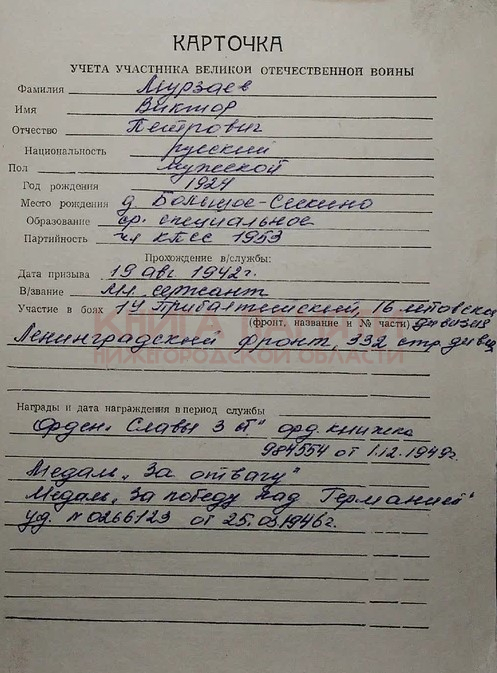 КАРТОЧКА
УЧЕТА УЧАСТНИКА ВЕЛИКОЙ ОТЕЧЕСТВЕННОЙ ВОЙНЫ
Фамилия Мурзаев
Имя Виктор
Отчество Петрович
Национальность русский
Пол мужской
Год рождения 1924
Место рождения д Большое-Сескино
Образование ср. специальное
Партийность чл КПСС 1953
Прохождение в/службы:
Дата призыва 19 авг 1942г.
В/звание мл. сержант
Участие в боях 1У Прибалтийский, 16 литовская
(фронт, название и № части) дивизия
Ленинградский фронт, 332 стр. див
КНИГА ПАМЯТИ
НИЖЕГОРОДСКОЙ ОБЛАСТИ
Награды и дата награждения в период службы
Орден „Славы 3 ст" орд. книжка
984554 от 1.12.1949г.
Медаль „За отвагу"
Медаль „За победу над Германией"
уд. №0266123 от 25.03.1946г.